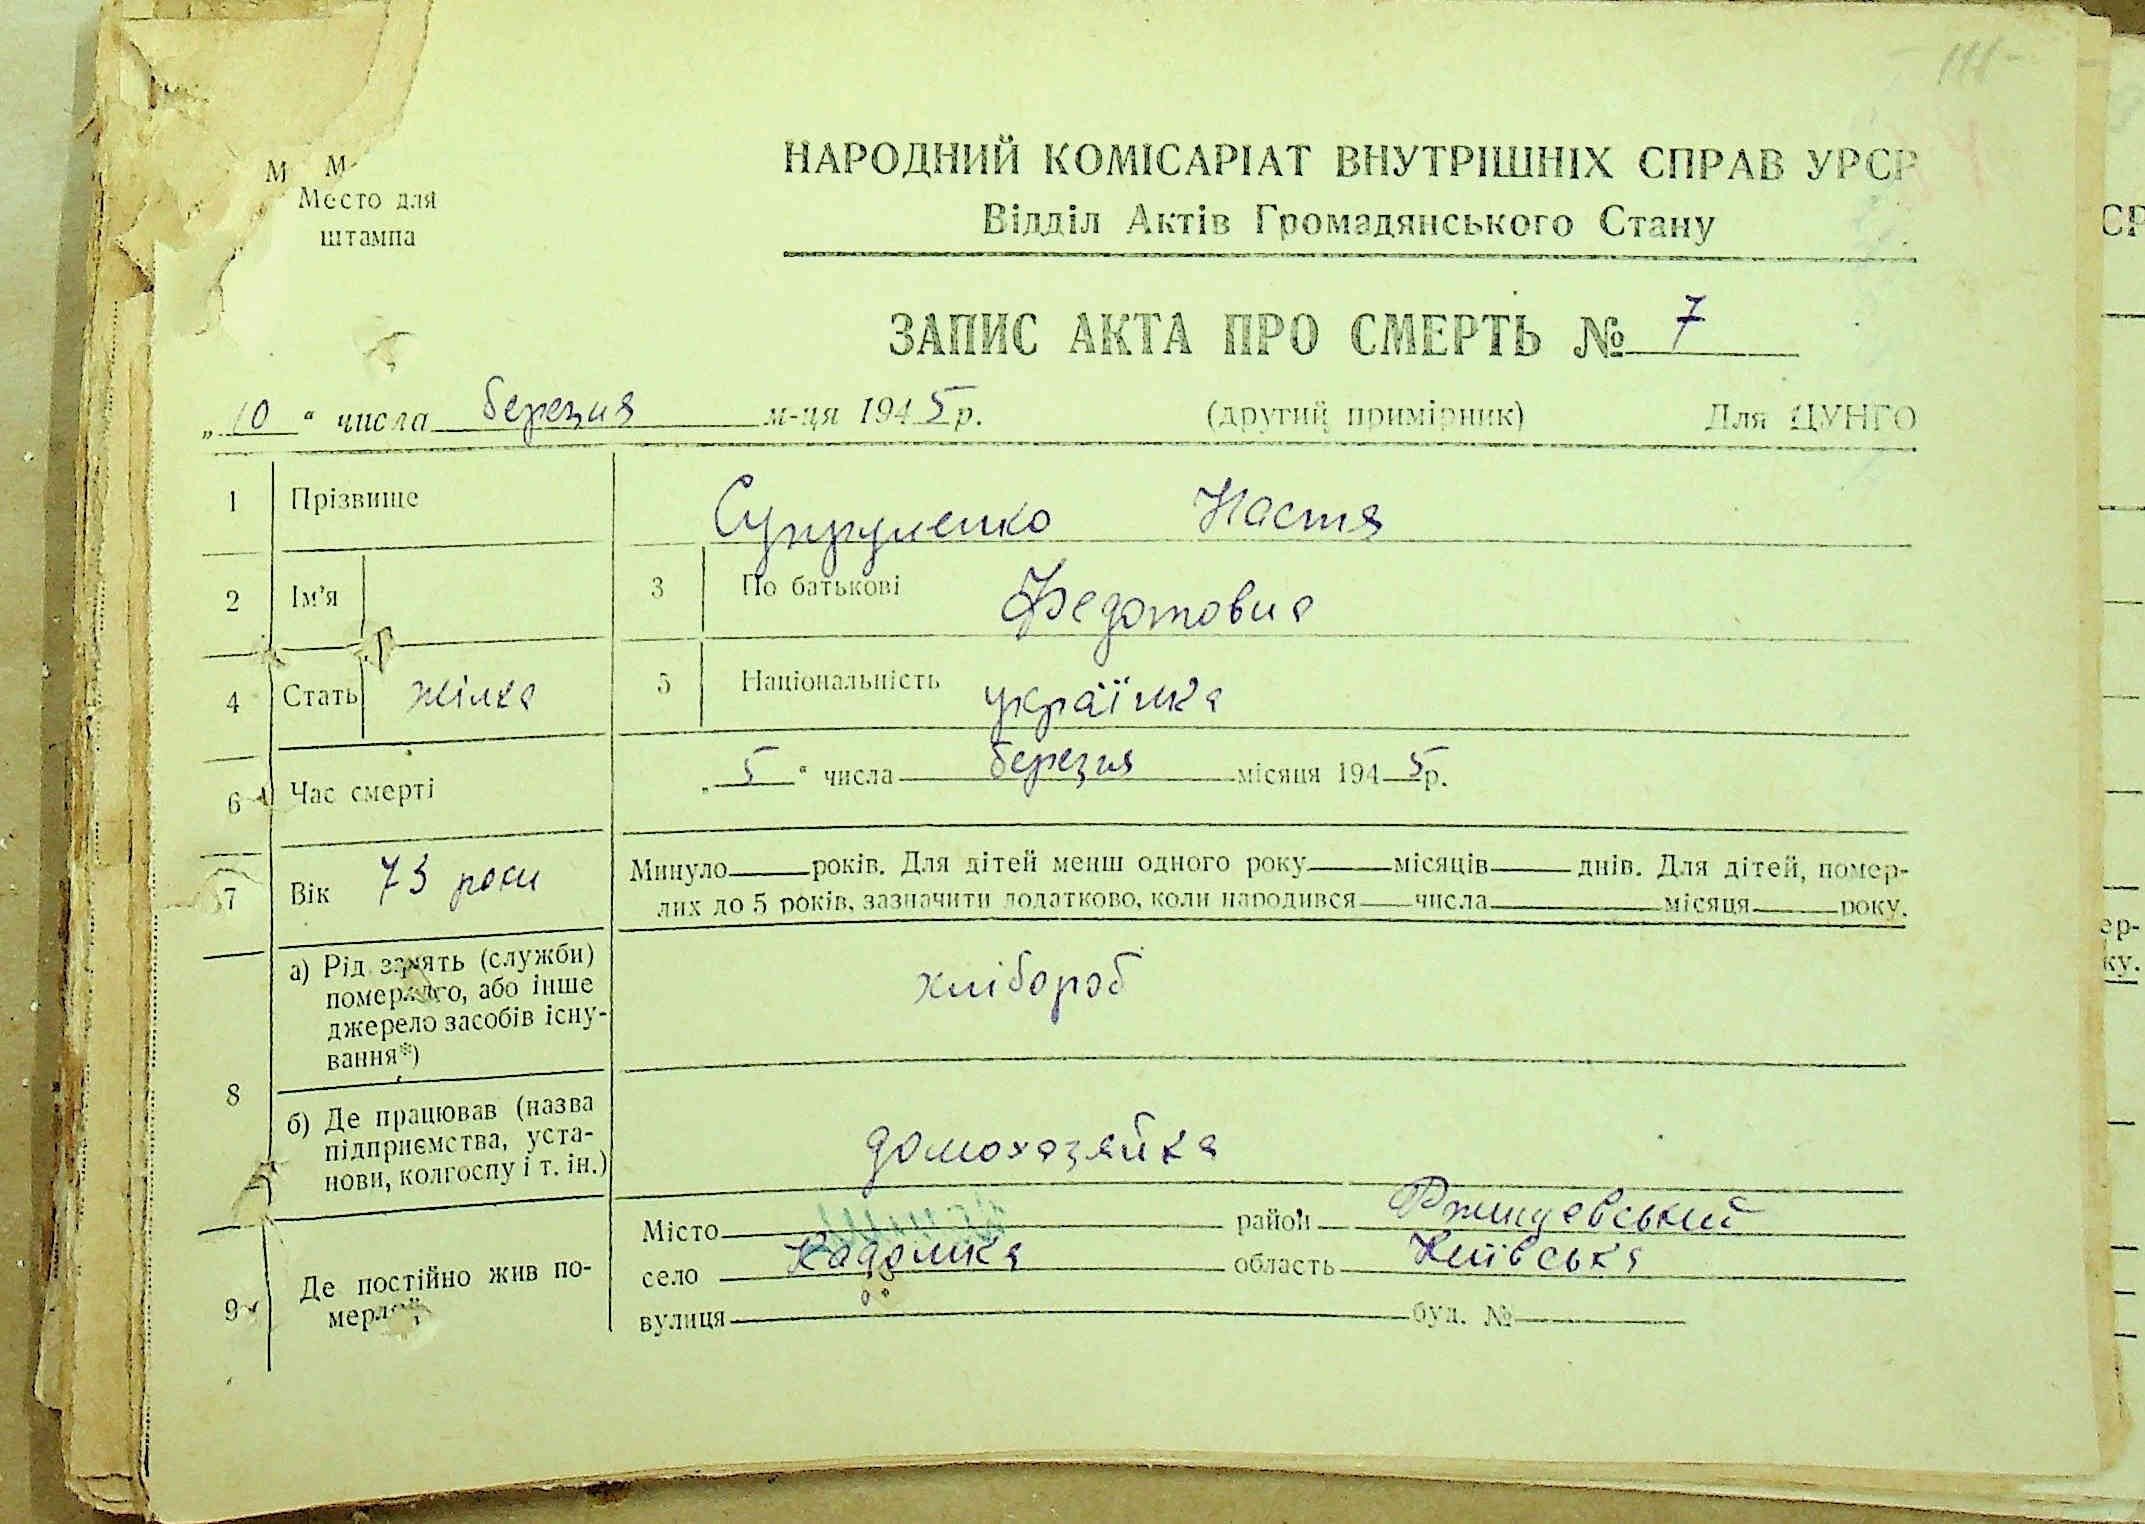 111-
М М
Место для
штампа
НАРОДНИЙ КОМІСАРІАТ ВНУТРІШНІХ СПРАВ УРСР
Відділ Актів Громадянського Стану
ЗАПИС АКТА ПРО СМЕРТЬ № 7
„10“ числа березня м-ця 1945 р. (другий примірник) Для ЦУНГО
1 Прізвище Супруненко Настя
2 Ім'я 3 По батькові Федотовна
4 Стать жінка 5 Національність українка
6 Час смерті „5“ числа березня місяця 1945 р.
7 Вік 73 роки Минуло років. Для дітей менш одного року місяців днів. Для дітей, помер-
лих до 5 років, зазначити додатково, коли народився числа місяця року.
8 а) Рід занять (служби)
помералго, або інше
джерело засобів існу-
вання*)
хлібороб
б) Де працював (назва
підприємства, уста-
нови, колгоспу і т. ін.)
домохазяйка
9 Де постійно жив по-
мерлий
Місто район Ржищевський
село Кадомка область Київська
вулиця буд. №